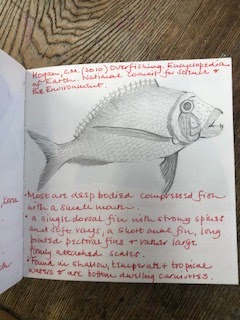 Hogan, C.M. (2010) Overfishing. Encyclopedia
of Earth. National Council for Science &
the Environment.
• Most are deep bodied compressed fish
with a small mouth.
• a single dorsal fin with strong spines
and soft rays, a short anal fin, long
pointed pectoral fins & large
firmly attached scales.
• Found in shallow, temperate & tropical
waters & are bottom dwelling carnivores.